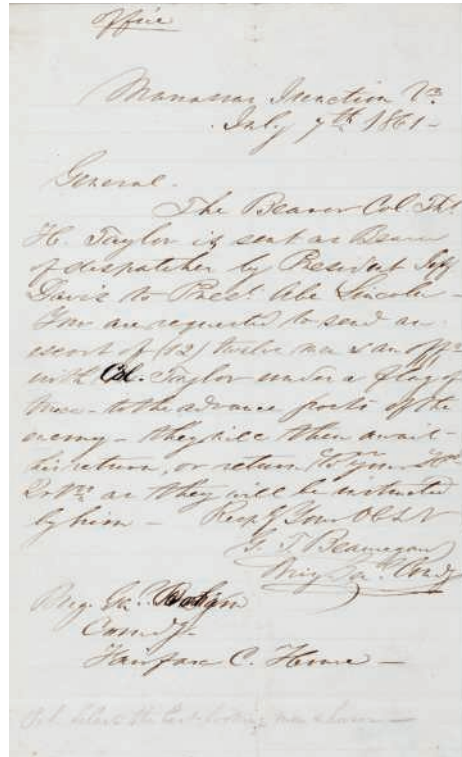 Office
Manassas Junction Va.
July 7th 1861 -
General.
The Bearer Col. Ths.
H. Taylor is sent as Bearer
of dispatches by President Jeff
Davis to Prest. Abe Lincoln -
You are requested to send an
escort of (12) twelve men & an offr.
with Col. Taylor under a flag of
truce - to the advance posts of the
enemy - they will then await
his return, or return to your Hd.
Qrs. as they will be instructed
by him - Respy. Your Ob. St.
G. T. Beauregard
Brig. Gnl. Comdg
Brig. Gnl.
Comdg.
Fairfax C. House -
P.S. Select the best looking men & horses -